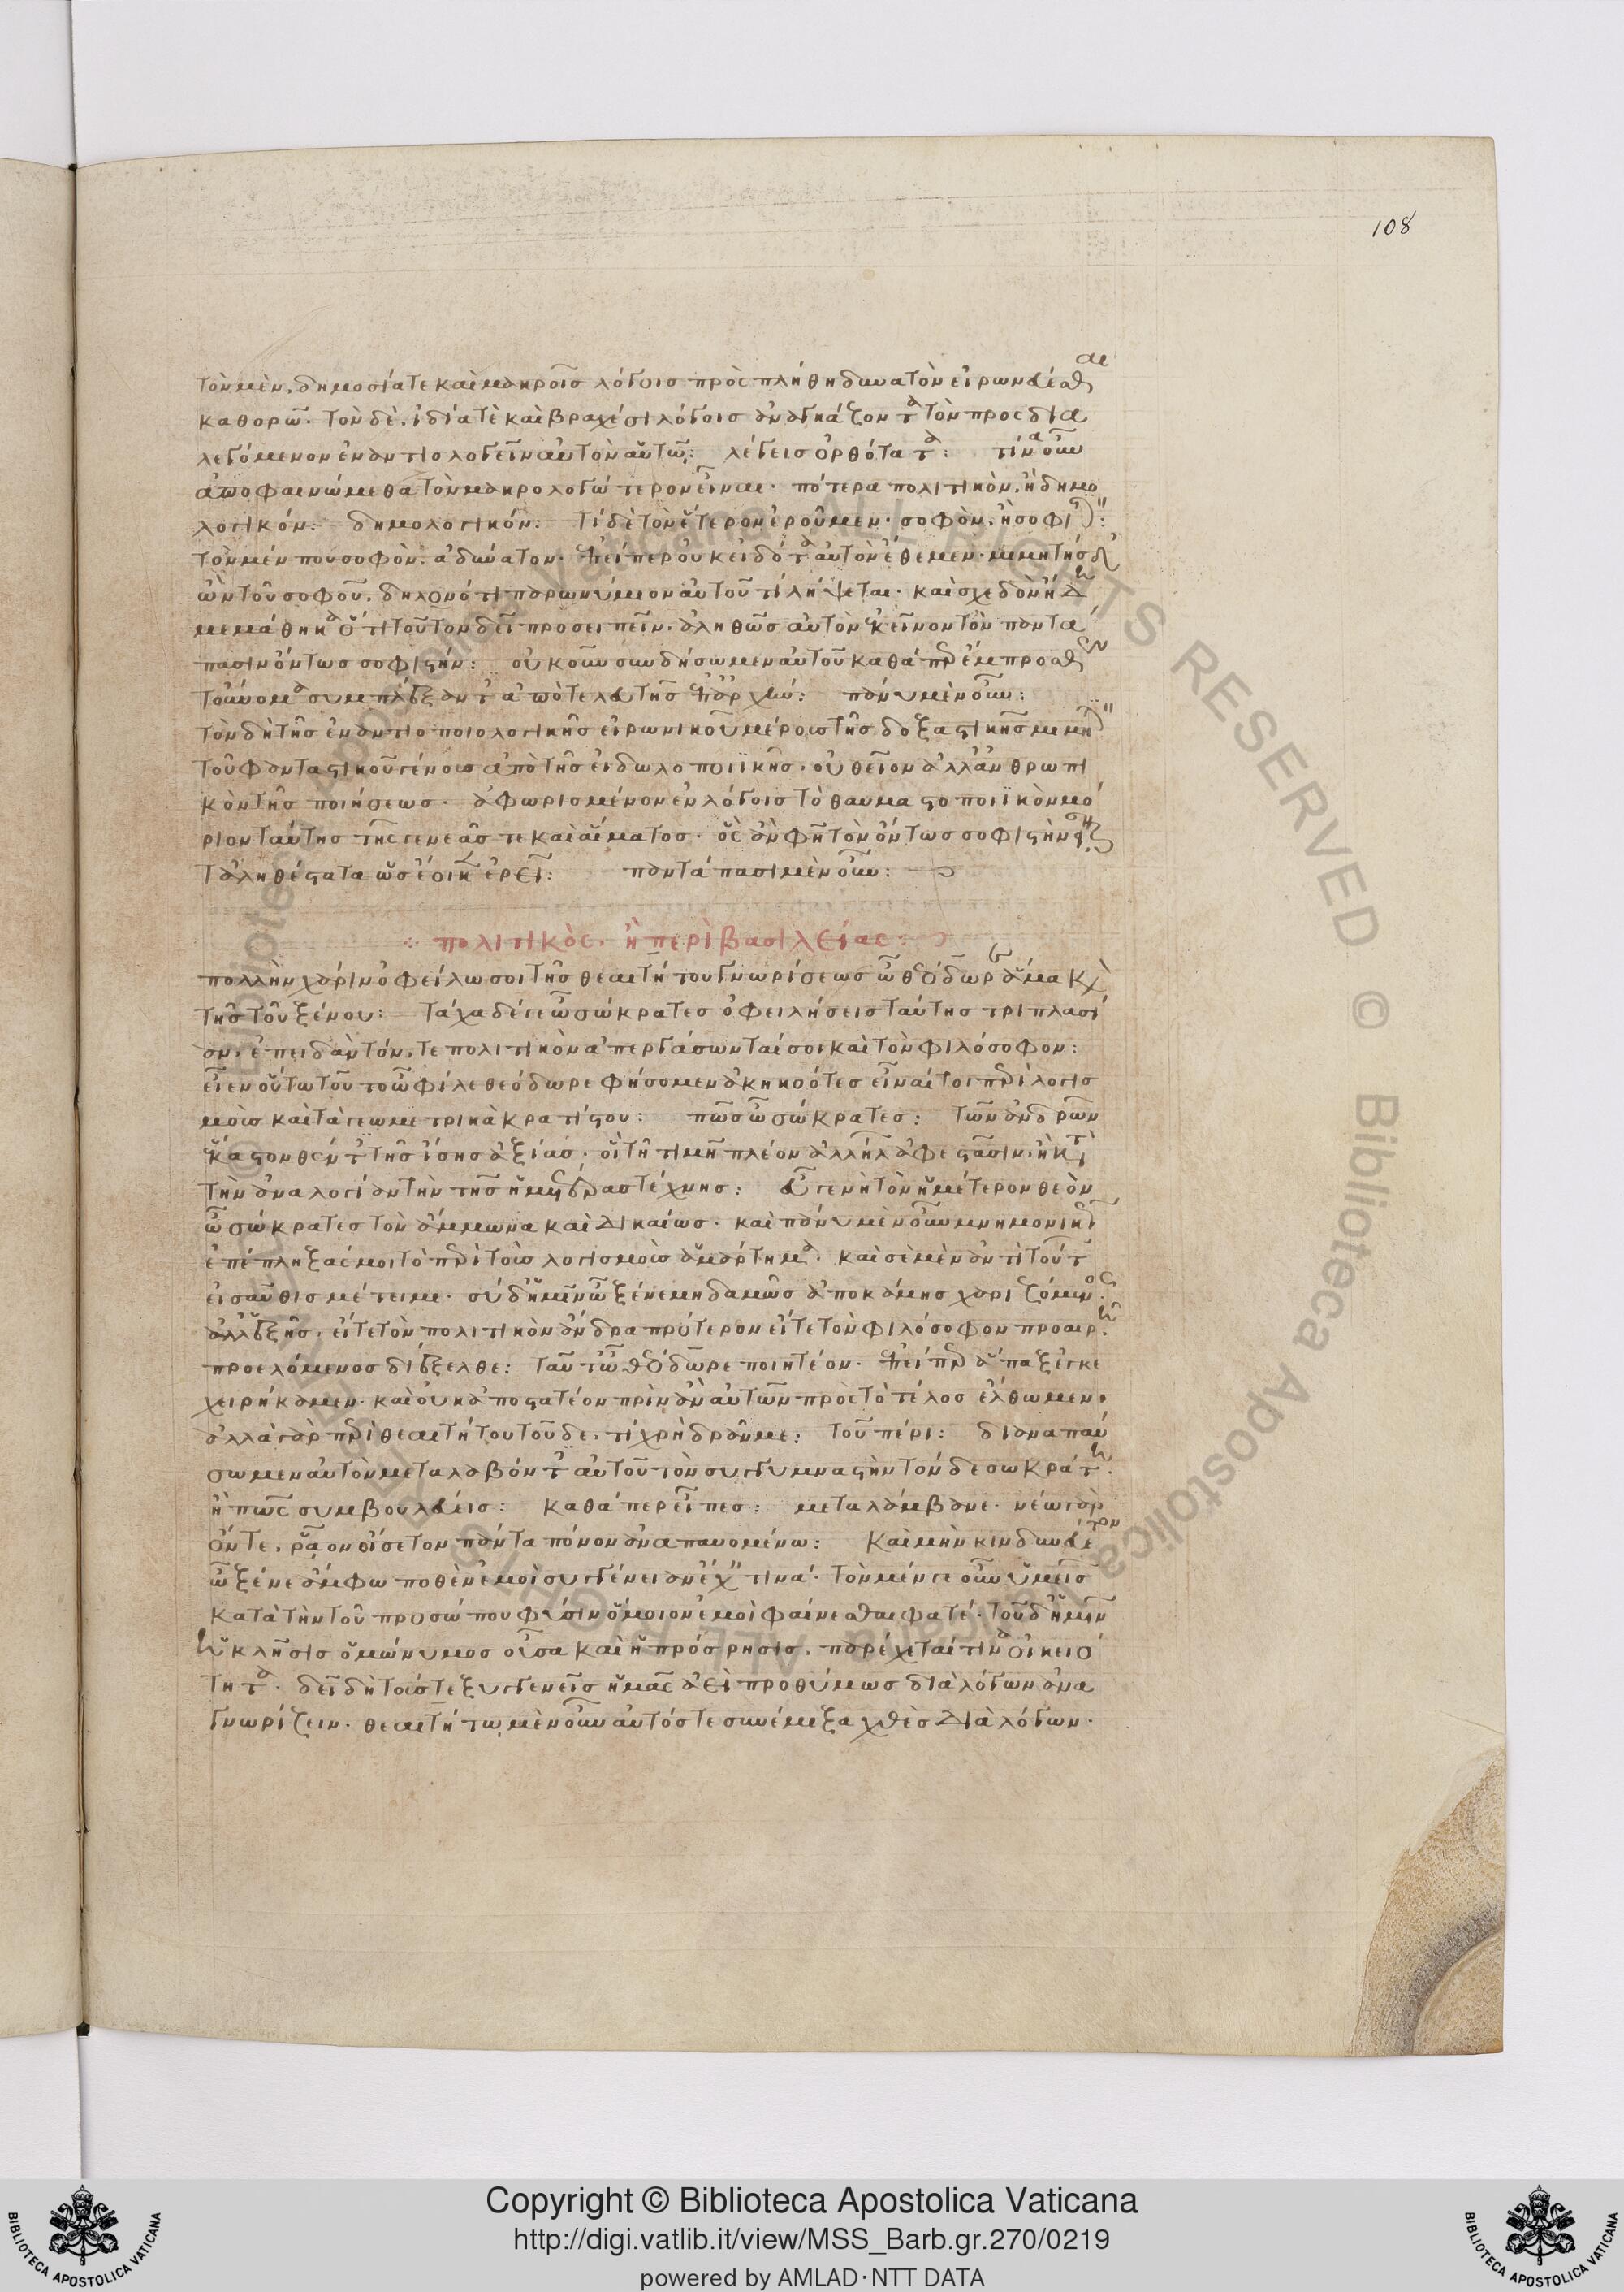 108
τὸν μὲν, δημοσίᾳ τε καὶ μακροῖς λόγοις πρὸς πλήθη δυνατὸν εἰρωνεύεσθαι
καθορῶ. τὸν δὲ, ἰδίᾳ τὲ καὶ βραχέσι λόγοις ἀναγκάζοντα τὸν προσδια
λεγόμενον ἐναντιολογεῖν αὐτὸν αὑτῶ: λέγεις ὀρθότατα: τίνα οὖν
ἀποφαινώμεθα τὸν μακρολογώτερον εἶναι. πότερα πολιτικὸν, ἢ δημο
λογικόν: δημολογικόν: τί δὲ τὸν ἕτερον ἐροῦμεν. σοφὸν, ἢ σοφιστικόν:
τὸν μέν που σοφὸν, ἀδύνατον. ἐπείπερ οὐκ εἰδότα αὐτὸν ἔθεμεν. μιμητὴς δ'
ὢν τοῦ σοφοῦ, δηλονότι παρωνύμιον αὐτοῦ τί λήψεται. καὶ σχεδὸν ἤδη
μεμάθηκα ὅτι τοῦτον δεῖ προσειπεῖν, ἀληθῶς αὐτὸν ἐκεῖνον τὸν παντά
πασιν ὄντως σοφιστήν: οὐκοῦν συνδήσωμεν αὐτοῦ καθάπερ ἔμπροσθεν
τοὔνομα συμπλέξαντες ἀπὸ τελευτῆς ἐπ' ἀρχήν: πάνυ μὲν οὖν:
τὸν δὴ τῆς ἐναντιοποιολογικῆς εἰρωνικοῦ μέρους τῆς δοξαστικῆς μιμητικὸν
τοῦ φανταστικοῦ γένους ἀπὸ τῆς εἰδωλοποιϊκῆς. οὐ θεῖον ἀλλ' ἀνθρωπι
κὸν τῆς ποιήσεως. ἀφωρισμένον ἐν λόγοις τὸ θαυματοποιϊκὸν μό
ριον ταύτης τῆς γενεᾶς τε καὶ αἵματος. ὃς ἂν φῆ τὸν ὄντως σοφιστὴν εἶναι,
τἀληθέστατα ὡς ἔοικεν ἐρεῖ: παντάπασι μὲν οὖν:
πολιτικὸς, ἢ περὶ βασιλείας:
πολλὴν χάριν ὀφείλω σοι τῆς θεαιτήτου γνωρίσεως ὦ θεόδωρε ἅμα καὶ
τῆς τοῦ ξένου: τάχα δέ γε ὦ σώκρατες ὀφειλήσεις ταύτης τριπλασί
αν, ἐπειδὰν τόν, τε πολιτικὸν ἀπεργάσωνταί σοι καὶ τὸν φιλόσοφον:
εἶεν οὕτω τοῦτο ὦ φίλε θεόδωρε φήσομεν ἀκηκοότες εἶναί τοι περὶ λογισ
μοὺς καὶ τὰ γεωμετρικὰ κρατίστου: πῶς ὦ σώκρατες: τῶν ἀνδρῶν
ἕκαστον θέντος τῆς ἴσης ἀξίας. οἳ τῆ τιμῆ πλέον ἀλλήλων ἀφεστᾶσιν, ἢ κατὰ
τὴν ἀναλογίαν τὴν τῆς ὑμετέρας τέχνης: εὖ γε νὴ τὸν ἡμέτερον θεὸν
ὦ σώκρατες τὸν ἄμμωνα καὶ δικαίως. καὶ πάνυ μὲν οὖν μνημονικῶς
ἐπέπληξάς μοι τὸ περὶ τοὺς λογισμοὺς ἁμάρτημα. καὶ σὲ μὲν ἀντὶ τούτων
εἰσαῦθις μέτειμι. σὺ δ' ἡμῖν ὦ ξένε μηδαμῶς ἀποκάμης χαριζόμενος.
ἀλλ' ἑξῆς, εἴτε τὸν πολιτικὸν ἄνδρα πρότερον εἴτε τὸν φιλόσοφον προαιρῆ.
προελόμενος διέξελθε: ταῦτ' ὦ θεόδωρε ποιητέον. ἐπείπερ ἅπαξ ἐγκε
χειρήκαμεν. καὶ οὐκ ἀποστατέον πρὶν ἂν αὐτῶν πρὸς τὸ τέλος ἔλθωμεν.
ἀλλὰ γὰρ περὶ θεαιτήτου τοῦδε, τί χρὴ δρᾶν με: τοῦ πέρι: διαναπαύ
σωμεν αὐτὸν μεταλαβόντες αὐτοῦ τὸν συγγυμναστὴν τόνδε σωκράτη.
ἢ πῶς συμβουλεύεις: καθάπερ εἶπες: μεταλάμβανε. νέω γὰρ
ὄντε, ῥᾷον οἴσετον πάντα πόνον ἀναπαυομένω: καὶ μὴν κινδυνεύετον
ὦ ξένε ἄμφω ποθὲν ἐμοὶ συγγένειαν ἔχειν τινά. τὸν μέν γε οὖν ὑμεῖς
κατὰ τὴν τοῦ προσώπου φύσιν ὅμοιον ἐμοὶ φαίνεσθαι φατέ. τοῦ δ' ἡμῖν
ἡ κλῆσις ὁμώνυμος οὖσα καὶ ἡ πρόσρησις, παρέχεταί τινα οἰκειό
τητα. δεῖ δὴ τούς τε ξυγγενεῖς ἡμᾶς ἀεὶ προθύμως διὰ λόγων ἀνα
γνωρίζειν. θεαιτήτῳ μὲν οὖν αὐτός τε συνέμιξα χθὲς διὰ λόγων.
Copyright © Biblioteca Apostolica Vaticana
http://digi.vatlib.it/view/MSS_Barb.gr.270/0219
powered by AMLAD·NTT DATA
BIBLIOTECA APOSTOLICA VATICANA
BIBLIOTECA APOSTOLICA VATICANA